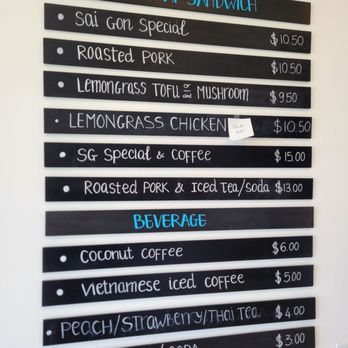 SANDWICH
Sai Gon Special $10.50
Roasted Pork $10.50
Lemongrass Tofu or Mushroom $9.50
Lemongrass Chicken $10.50
SG Special & Coffee $15.00
Roasted Pork & Iced Tea/Soda $13.00
BEVERAGE
Coconut Coffee $6.00
Vietnamese iced coffee $5.00
Peach/Strawberry/Thai Tea $4.00
$3.00